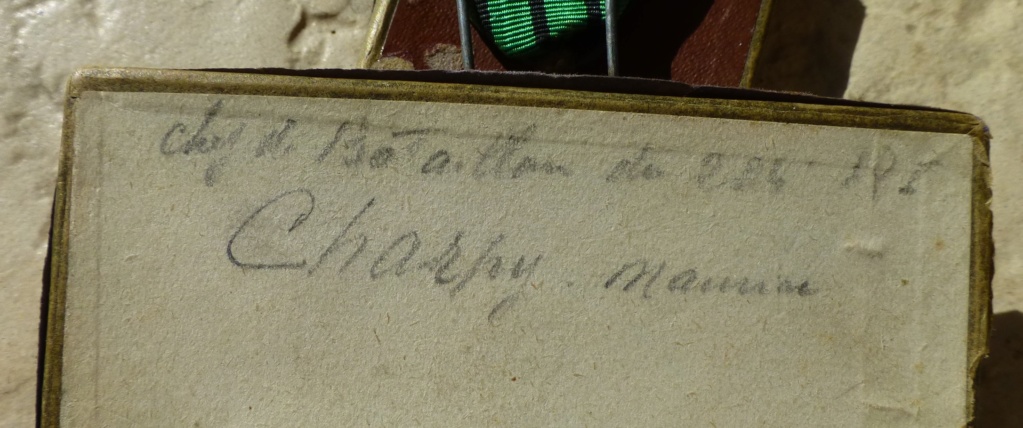 chef de Bataillon du
Charpy. Maurice